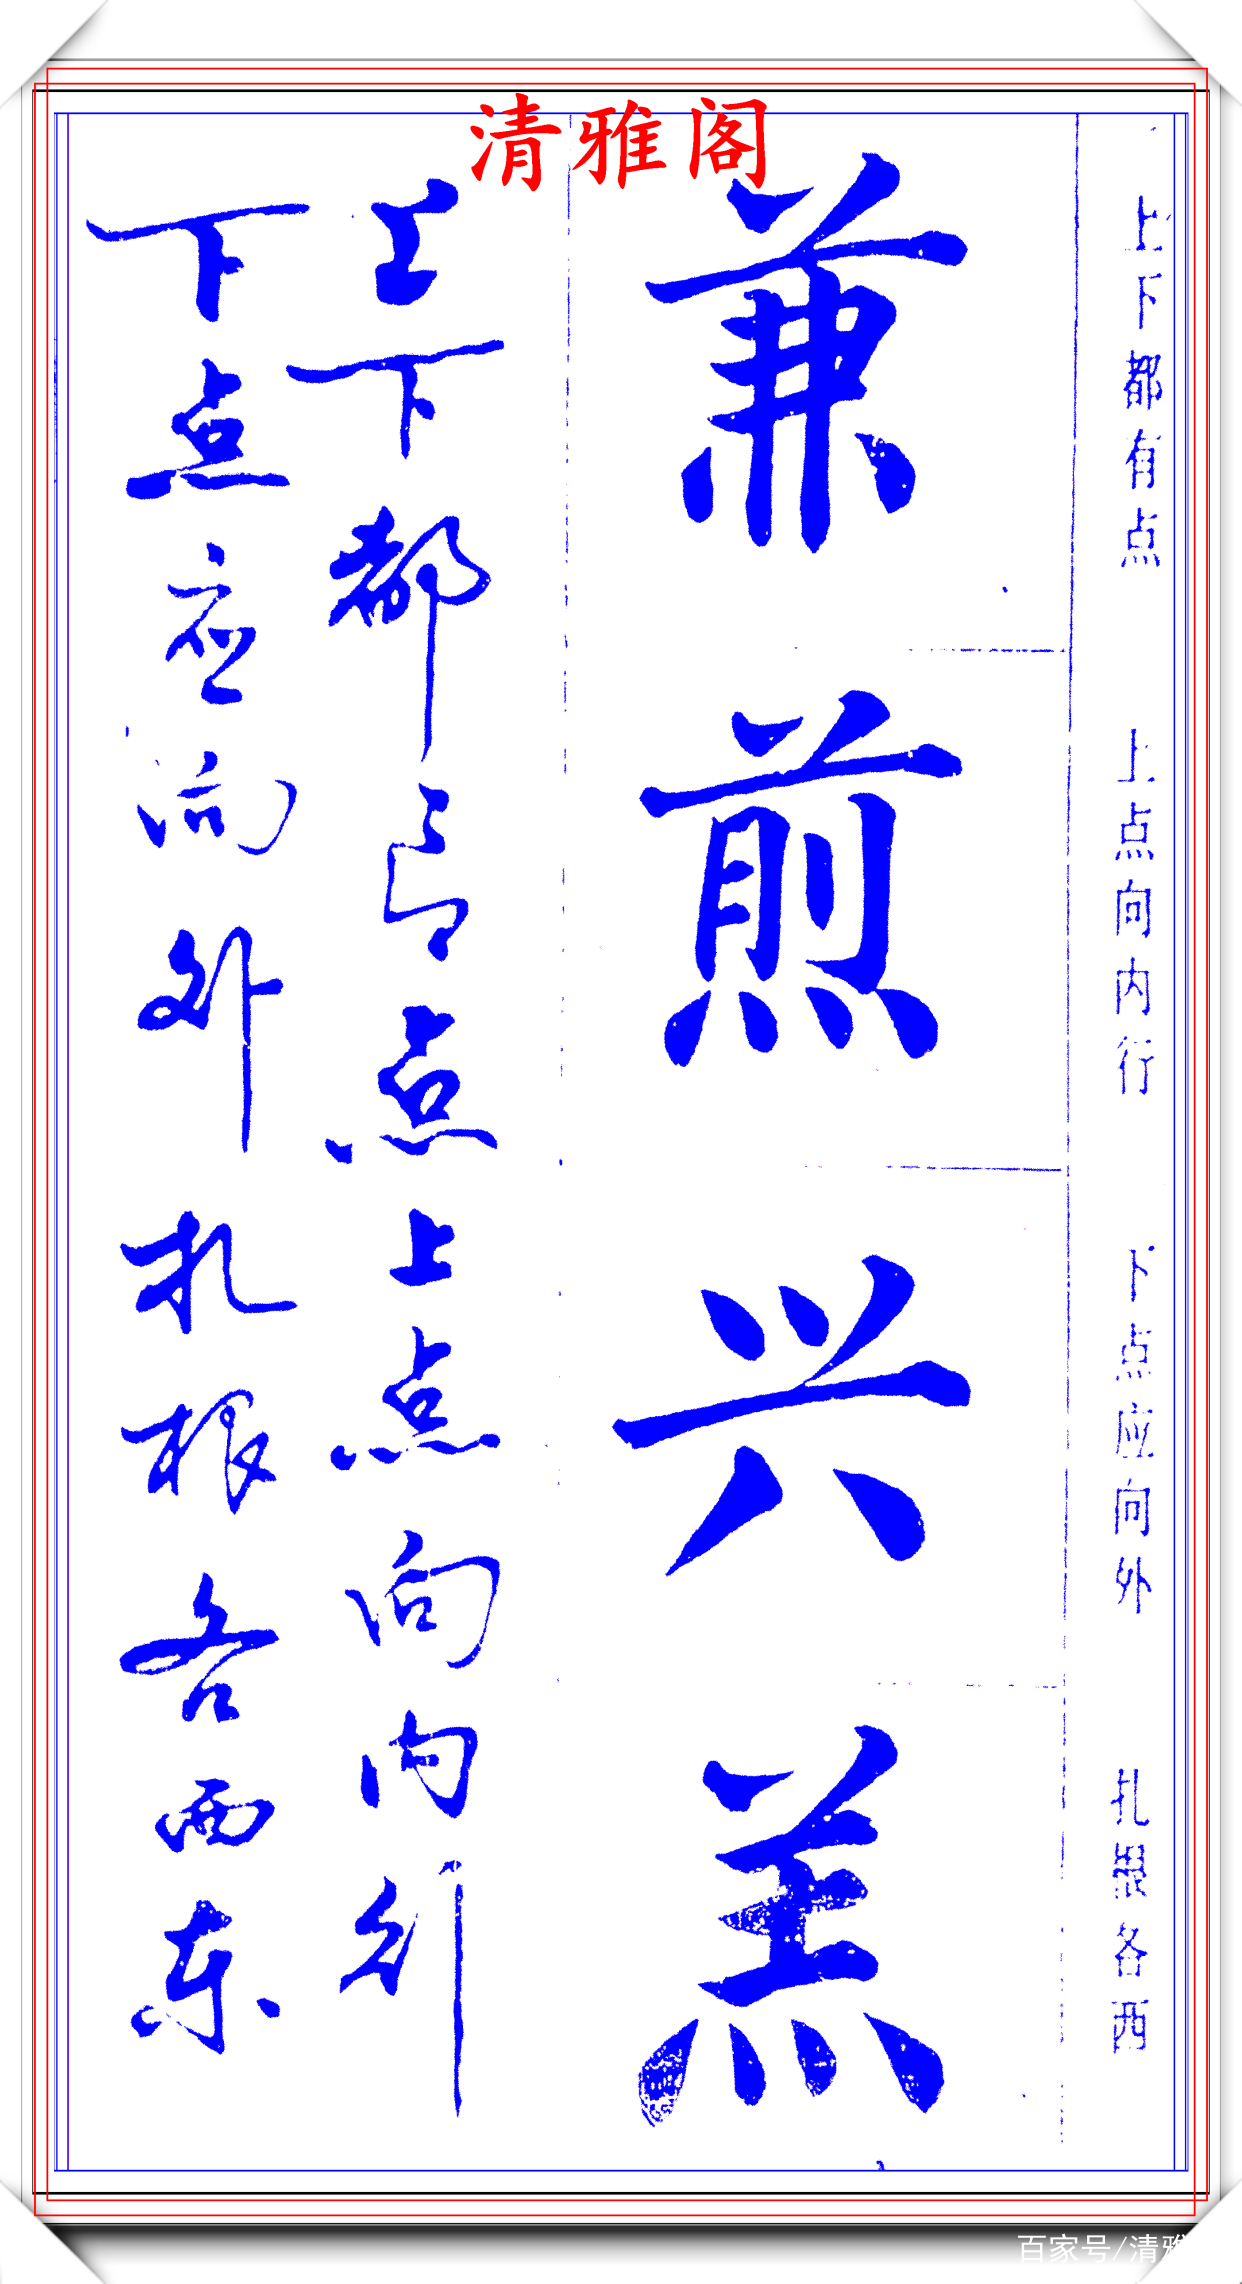 清雅阁
上下都有点 上点向内行 下点应向外 扎跟各西
兼煎兴羔
上下都有点上点向内行
下点应向外扎根各西东
百家号/清雅